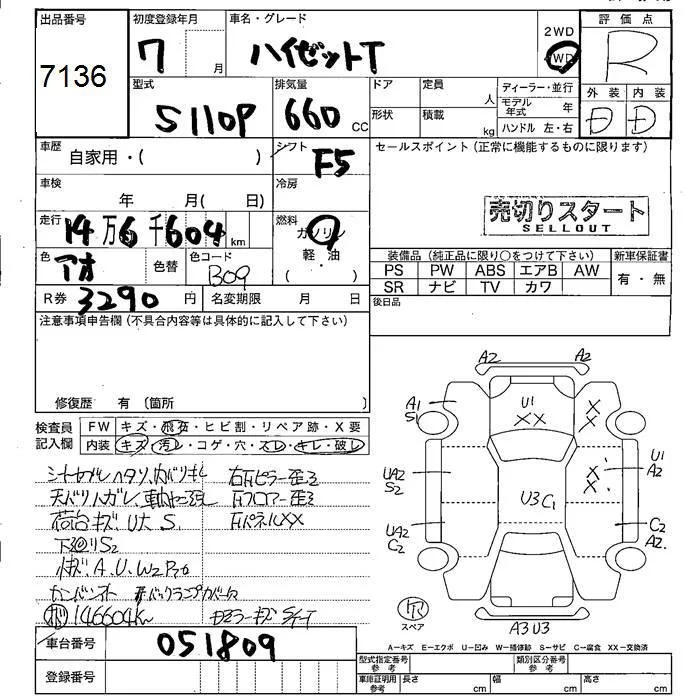 出品番号
7136
初度登録年月
7
月
車名・グレード
ハイゼットT
2WD
4WD
評価点
R
外装
内装
D
D
型式
S110P
排気量
660
CC
ドア
形状
定員
人
積載
kg
ディーラー・並行
モデル年式
年
ハンドル 左・右
車歴
自家用・( )
シフト
F5
セールスポイント(正常に機能するものに限ります)
車検
年 月( 日)
冷房
売切りスタート
SELLOUT
走行
14万6千604km
燃料
ガソリン
軽・油
( )
色
アオ
色替
色コード
B09
装備品(純正品に限り○をつけて下さい)
新車保証書
PS PW ABS エアB AW
SR ナビ TV カワ
有・無
後日品
R券
3290円
名変期限
月 日
注意事項申告欄(不具合内容等は具体的に記入して下さい)
修復歴 有 〔箇所
検査員記入欄
FW
キズ・飛石・ヒビ割・リペア跡・X要
内装
キズ・汚レ・コゲ・穴・スレ・キレ・破レ
右Fピラー歪ミ
天バリハガレ
Fフロアー歪ミ
荷台キズ U大 S
FパネルXX
下廻りS2
146604km
A2
A2
A1
S1
U1
XX
X
X
UA2
S2
U3 C1
X
X
U1
A2
UA2
C2
C2
A2
スペア
A3 U3
車台番号
051809
登録番号
A-キズ E-エクボ U-凹み W-補修跡 S-サビ C-腐食 XX-交換済
型式指定番号
参考
類別区分番号
参考
車庫証明用
参考
長さ
cm
幅
cm
高さ
cm